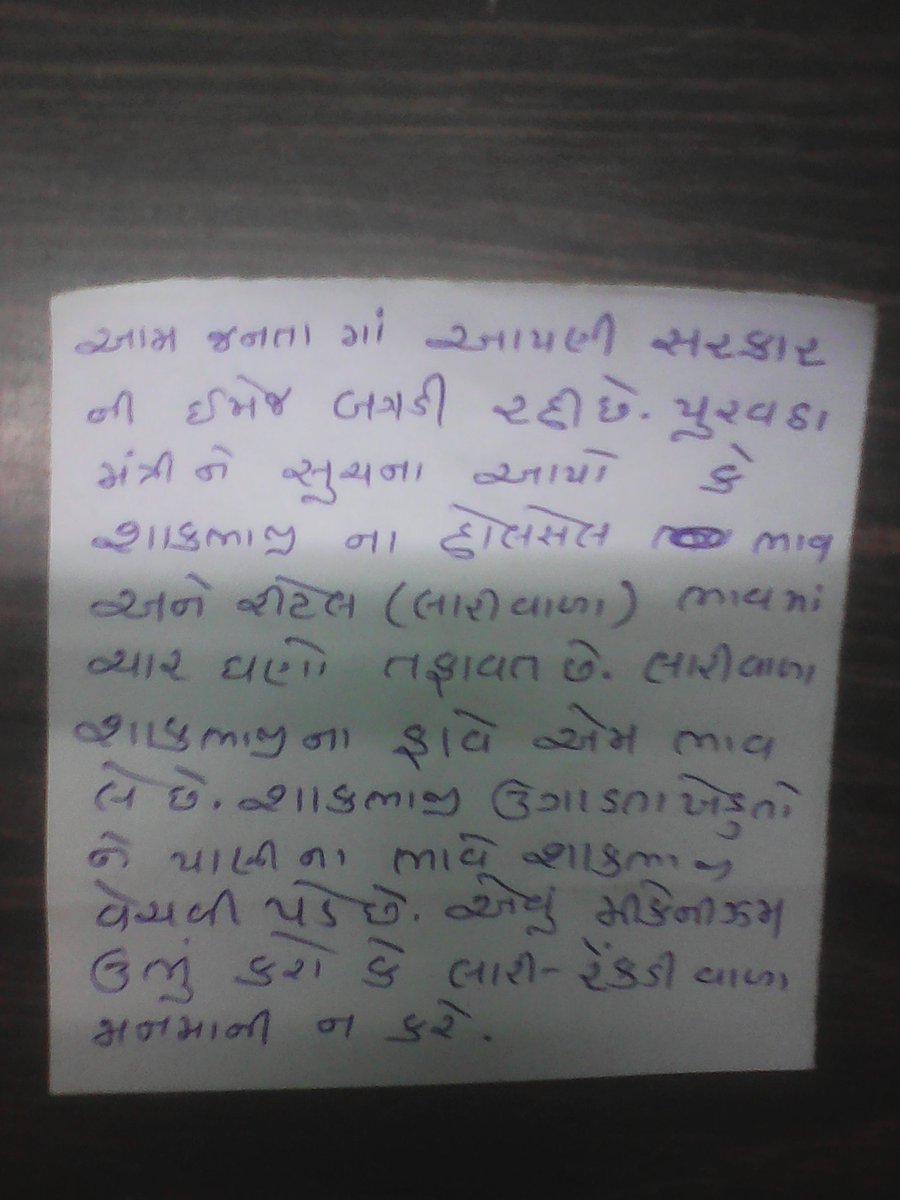 આમ જનતા માં આપણી સરકાર
ની ઈમેજ બગડી રહી છે. પુરવઠા
મંત્રી ને સુચના આપો કે
શાકભાજી ના હોલસેલ ભાવ
અને રીટેલ (લારીવાળા) ભાવમાં
ચાર ઘણો તફાવત છે. લારીવાળા
શાકભાજી ના ફાવે એમ ભાવ
લે છે. શાકભાજી ઉગાડતા ખેડુતો
ને પાણી ના ભાવે શાકભાજી
વેચવી પડે છે. એવું મીકેનીઝમ
ઉભું કરો કે લારી-રેંકડી વાળા
મનમાની ન કરે.